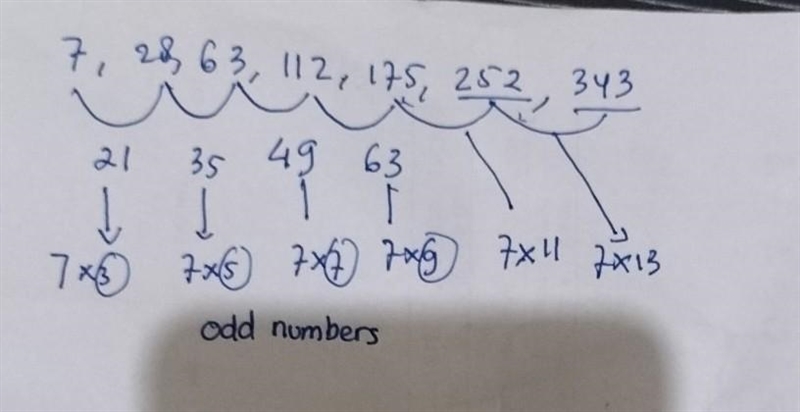 7, 28, 63, 112, 175, 252, 343
21 35 49 63
7×3 7×5 7×7 7×9 7×11 7×13
odd numbers